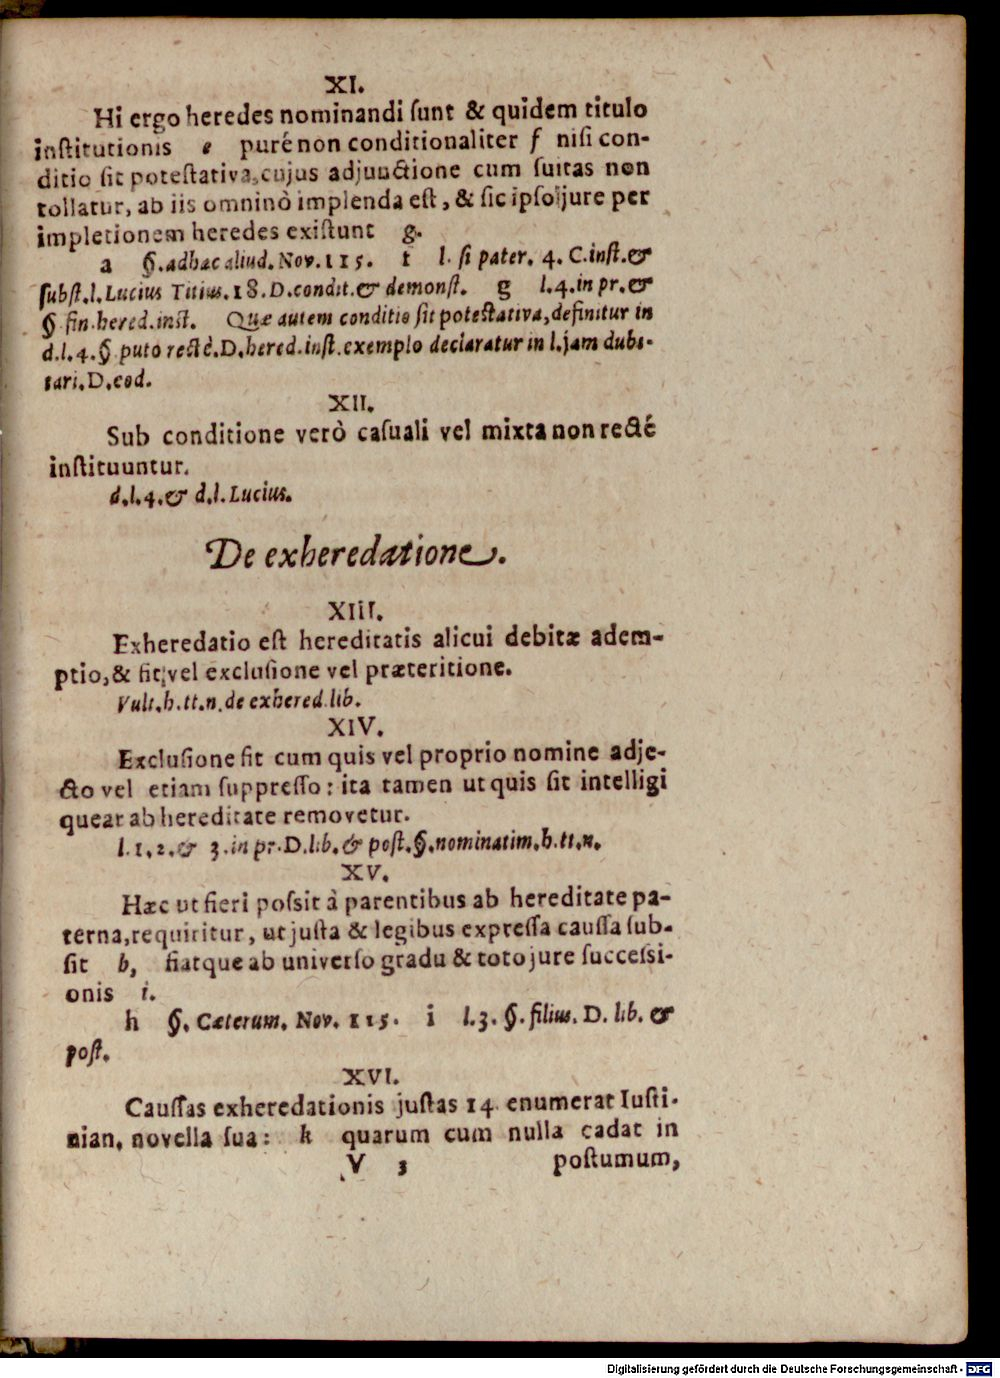 XI.
Hi ergo heredes nominandi ſunt & quidem titulo
inſtitutionis e purè non conditionaliter f niſi con-
ditio ſit poteſtativa, cujus adjunctione cum ſuitas non
tollatur, ab iis omninò implenda eſt, & ſic ipſo jure per
impletionem heredes exiſtunt g.
a §. adhæc aliud. Nov. 115. t l. ſi pater. 4. C. inſt. &
ſubſt. l. Lucius Titius. 18. D. condit. & demonſt. g l. 4. in pr. &
§ fin. hered. inſt. Quæ autem conditio ſit poteſtativa, definitur in
d. l. 4. § puto rectè. D. hered. inſt. exemplo declaratur in l. jam dubi-
tari. D. eod.
XII.
Sub conditione verò caſuali vel mixta non rectè
inſtituuntur.
d. l. 4. & d. l. Lucius.
De exheredatione.
XIII.
Exheredatio eſt hereditatis alicui debitæ adem-
ptio, & fit vel excluſione vel præteritione.
Vult. h. tt. n. de exhered. lib.
XIV.
Excluſione fit cum quis vel proprio nomine adje-
cto vel etiam ſuppreſſo: ita tamen ut quis ſit intelligi
queat ab hereditate removetur.
l. 1. 2. & 3. in pr. D. lib. & poſt. §. nominatim. h. tt. n.
XV.
Hæc ut fieri poſsit à parentibus ab hereditate pa-
terna, requiritur, ut juſta & legibus expreſſa cauſſa ſub-
ſit h, fiatque ab univerſo gradu & toto jure ſucceſsi-
onis i.
h §. Cæterum. Nov. 115. i l. 3. §. filius. D. lib. &
poſt.
XVI.
Cauſſas exheredationis juſtas 14 enumerat Iuſti-
nian. novella ſua: k quarum cum nulla cadat in
V 3 poſtumum,
Digitalisierung gefördert durch die Deutsche Forschungsgemeinschaft - DFG